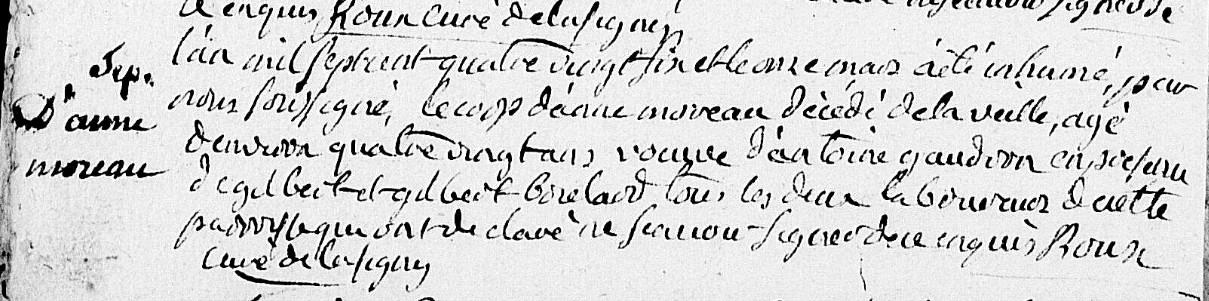 de enquis Roux curé de lusigny
Sep.
D'anne
moreau
l'an mil sept cent quatre vingt six et le onze mars à été inhumé, par
nous soussigné, le corp d'anne moreau décédé de la veille, agé
d'environ quatre vingt ans veuve d'antoine gaudron en présence
de gilbert et gilbert tous les deux laboureurs de cette
paroisse qui ont déclaré ne scavoir signer de ce enquis Roux
curé de lusigny